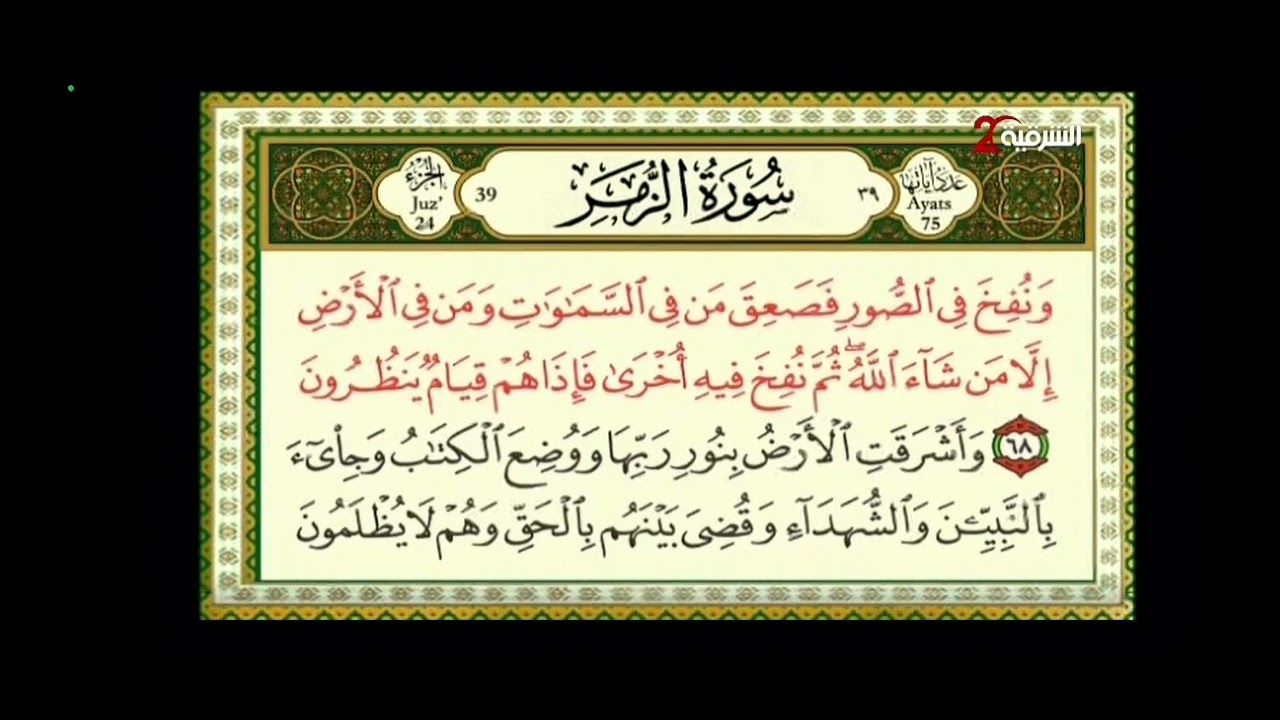 الشرقية 2
عدد آياتها
Ayats
75
٣٩
سُورَةُ الزُّمَرِ
39
الجزء
Juz'
24
وَنُفِخَ فِى ٱلصُّورِ فَصَعِقَ مَن فِى ٱلسَّمَـٰوَٰتِ وَمَن فِى ٱلْأَرْضِ
إِلَّا مَن شَآءَ ٱللَّهُ ۖ ثُمَّ نُفِخَ فِيهِ أُخْرَىٰ فَإِذَا هُمْ قِيَامٌ يَنظُرُونَ
٦٨ وَأَشْرَقَتِ ٱلْأَرْضُ بِنُورِ رَبِّهَا وَوُضِعَ ٱلْكِتَـٰبُ وَجِا۟ىٓءَ
بِٱلنَّبِيِّـۧنَ وَٱلشُّهَدَآءِ وَقُضِىَ بَيْنَهُم بِٱلْحَقِّ وَهُمْ لَا يُظْلَمُونَ